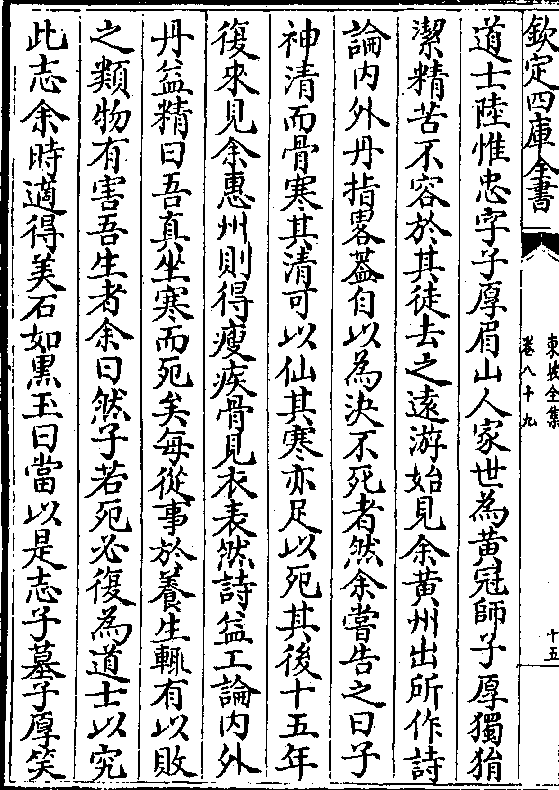 欽定四庫全書
東坡全集
卷八十九
十五
道士陸惟忠字子厚眉山人家世為黃冠師子厚獨狷
潔精苦不容於其徒去之遠游始見余黃州出所作詩
論內外丹指畧葢自以為決不死者然余嘗告之曰子
神清而骨寒其清可以仙其寒亦足以死其後十五年
復來見余惠州則得瘦疾骨見衣表然詩益工論內外
丹益精曰吾真坐寒而死矣每從事於養生輒有以敗
之類物有害吾生者余曰然子若死必復為道士以究
此志余時適得美石如黒玉曰當以是志子墓子厚笑